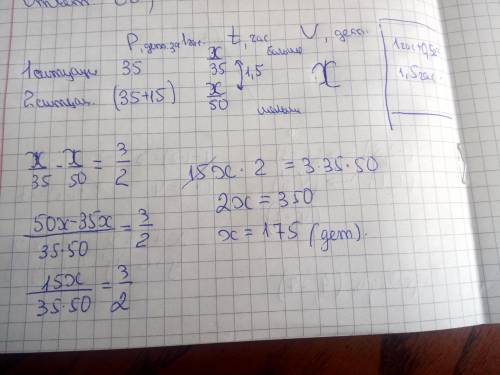 P, дет. за 1 час. t, час V, дет.
1 ситуация 35 x/35 больше
1,5 x
2 ситуац. (35+15) x/50 меньше
1 час + 0,5 ч
1,5 час.
x/35 - x/50 = 3/2
(50x-35x)/(35·50) = 3/2
15x/(35·50) = 3/2
15x · 2 = 3·35·50
2x = 350
x = 175 (дет).